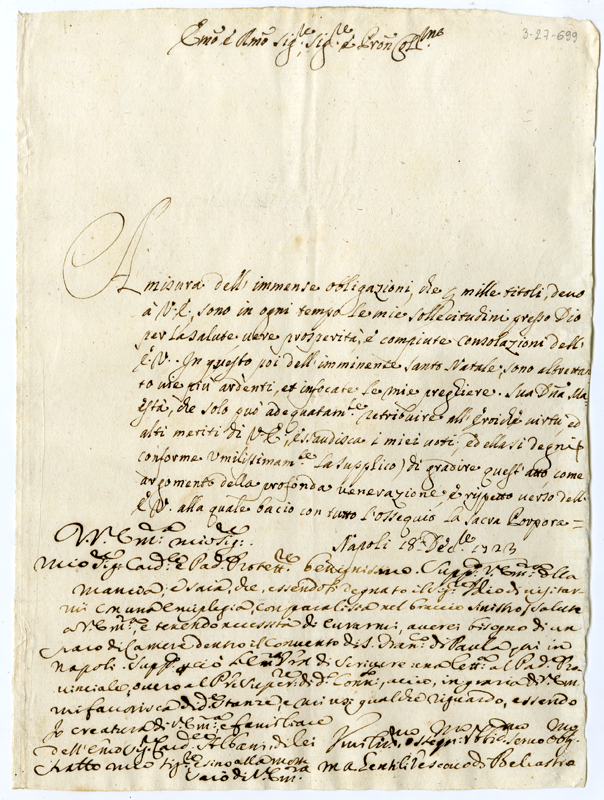 3-27-699
Emo e Rmo Sigre, Sigre e Pron Collmo
A misura dell'immense obligazioni, che p mille titoli, devo
à V.E., sono in ogni tempo le mie sollecitudini presso Dio
per la salute, vere prosperità, e compiute consolazioni dell'
E.V. In questo poi dell'imminente Santo Natale, sono altrettan
to vie più ardenti, et infocate le mie preghiere. Sua Dna Ma
està, che solo può adeguatamte retribuire all'eroiche virtù ed
alti meriti di V.E., esaudisca i miei voti, ed ella si degni (
conforme umilissimamte la supplico) di gradire quest'atto come
argomento della profonda venerazione, e rispetto verso dell'
E.V. alla quale bacio con tutto l'ossequio la Sacra Porpora =
Napoli 18 Dicbre 1723
V. Emza mio Sigr:
mio Sigr: Cardle e Padn Protettre benignissimo. Suppco V. Emza della
essendosi degnato il Sigr Dio di visitar-
mi con una emiplegia, con paralisia nel braccio sinistro, salute
a V. Emza, e tenendo necessità di curarmi, averei bisogno di un
paro di camere dentro il Convento di S. Franco di Paula, qui in
Napoli. Supplico a V. Emza di scrivere una lettra al Padre Pro
vinciale, overo al P. Superre di do Convto, acciò, in grazia di V. Em
mi favorisca di de Stanze, e mi usi qualche riguardo, essendo
Io creatura di V. Emza e familiare
dell'Emo Sigr Cardle Albani, di lei
tratto mio Sigre sino alla morte
Vescovo di Belcastro